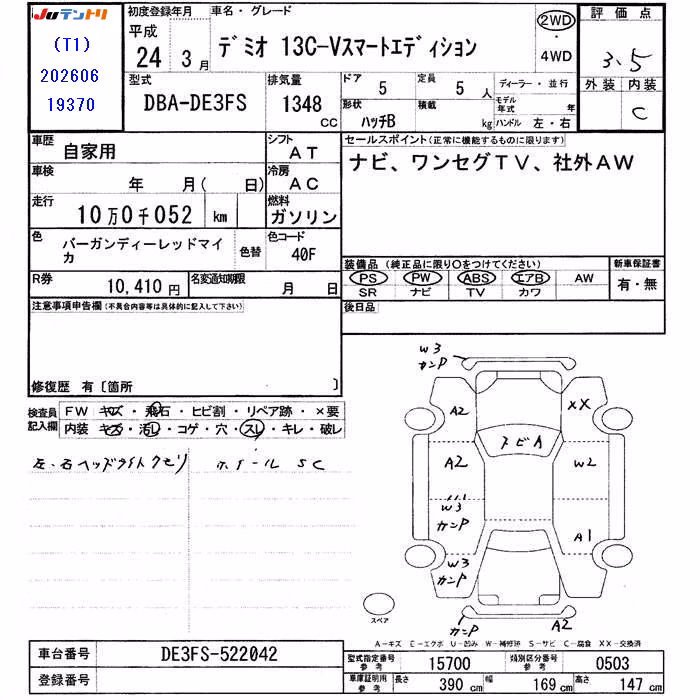 Juテントリ
(T1)
202606
19370
初度登録年月
平成
24 3月
車名・グレード
デミオ 13C-Vスマートエディション
2WD
4WD
評価点
3.5
外装 内装
C
型式
DBA-DE3FS
排気量
1348
CC
ドア
5
定員
5 人
ディーラー・並行
形状
ハッチB
積載
kg
モデル年式
年
ハンドル 左・右
車歴
自家用
シフト
AT
車検
年 月( 日)
冷房
AC
走行
10万0千052 km
燃料
ガソリン
色
バーガンディーレッドマイカ
色替
色コード
40F
R券
10,410円
名変通知期限
月 日
セールスポイント(正常に機能するものに限ります)
ナビ、ワンセグTV、社外AW
装備品(純正品に限り○をつけてください)
新車保証書
PS PW ABS エアB AW
SR ナビ TV カワ
有・無
注意事項申告欄(不具合内容等は具体的に記入して下さい)
後日品
修復歴 有〔箇所 〕
検査員記入欄
FW キズ・飛石・ヒビ割・リペア跡・×要
内装 キズ・汚レ・コゲ・穴・スレ・キレ・破レ
左、右ヘッドライトクモリ
ホイール SC
W3
カンP
A2
XX
トビA
A2
W2
W3
カンP
A1
W3
カンP
カンP
A2
スペア
A-キズ E-エクボ U-凹み W-補修跡 S-サビ C-腐食 XX-交換済
車台番号
DE3FS-522042
登録番号
型式指定番号
参考
15700
類別区分番号
参考
0503
車庫証明用
参考
長さ
390 cm
幅
169 cm
高さ
147 cm